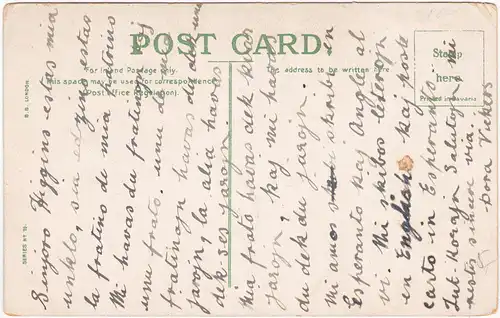 POST CARD.
For Inland Postage only,
This space may be used for correspondence
(Post Office Regulation).
The address to be written here
Stamp
here
Printed in Bavaria
B.B. LONDON
SERIES Nº
Sinjoro Higgins estas mia
unklo, sia edzyno estas
la fratino de mia patrino
Mi havas du fratinojn
unu frato. unu de miaj
fratinojn havas dek unu
jarojn, la alia havas
dek ses jarojn.
Mia frato havas dek kvar
jarojn, kaj mi havas
du dek du jarojn.
Mi amos skribi in
Esperanto kaj Angle al
vi. Mi skibos leterojn
en kaj poste
carto in Esperanto.
Tut. Korajn Salutojn. Mi
restos sincere via
Vickers